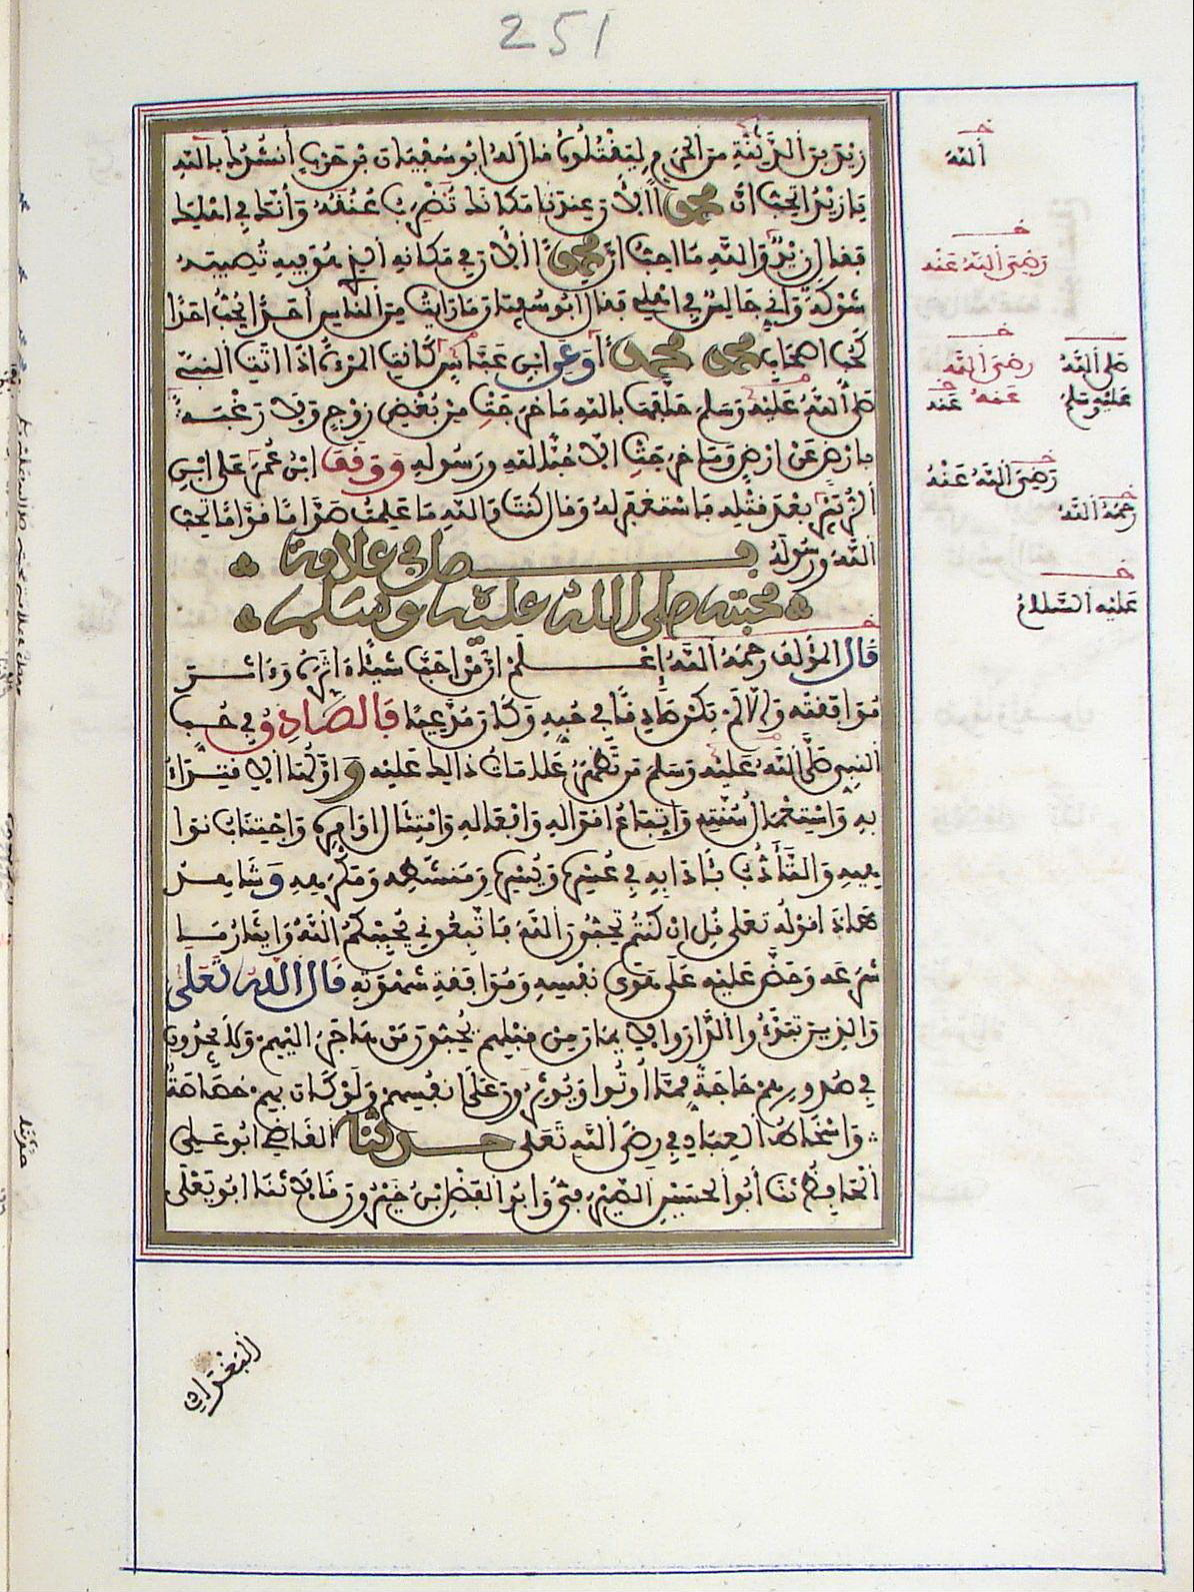 251
زيد بن الدثنة من الحرم ليقتلوه قال له ابو سفيان بن حرب أنشدك بالله
يا زيد اتحب ان محمدا الان عندنا مكانك تضرب عنقه وأنك في اهلك
فقال زيد والله ما احب ان محمدا الان في مكانه الذي هو فيه تصيبه
شوكة واني جالس في اهلي فقال ابو سفين ما رايت من الناس احدا يحب احدا
كحب اصحاب محمد محمدا وعن ابن عباس كانت المرءة اذا اتت النبيء
صلى الله عليه وسلم حلفها بالله ما خرجت من بغض زوج ولا رغبة
بارض عن ارض وما خرجت الا حبا لله ورسوله ووقف ابن عمر على ابن
الزبير بعد قتله فاستغفر له وقال كنت والله ما علمت صواما قواما تحب
الله ورسوله فصل في علامة
محبته صلى الله عليه وسلم
قال المؤلف رحمه الله اعلم ان من احب شيئا ءاثره وءاثر
موافقته والا لم يكن صادقا في حبه وكان مدعيا فالصادق في حب
النبي صلى الله عليه وسلم من تظهر علامات ذلك عليه واولها الاقتداء
به واستعمال سنته واتباع اقواله وافعاله وامتثال اوامره واجتناب نوا
هيه والتأدب بئادابه في عسره ويسره ومنشطه ومكرهه وشاهد
هاذا قوله تعلى قل ان كنتم تحبون الله فاتبعوني يحببكم الله وايثار ما
شرعه وحض عليه على هوى نفسه وموافقة شهوته قال الله تعلى
والذين تبوءو الدار والايمان من قبلهم يحبون من هاجر اليهم ولا يجدون
في صدورهم حاجة مما أوتوا ويوثرون على انفسهم ولو كان بهم خصاصة
واسخاط العباد في رضى الله تعلى حدثنا القاضي ابو علي
الحافظ نا أبو الحسين الصيرفي وابو الفضل بن خيرون قالا نا ابو يعلى
البغدادي
خـ
ألله
خـ
رضي الله عنه
صلى الله
عليه وسلم
خـ
رضي الله
عنه
عنه
خـ
رضي الله عنه
خـ
رحمه الله
خـ
عليه السلام